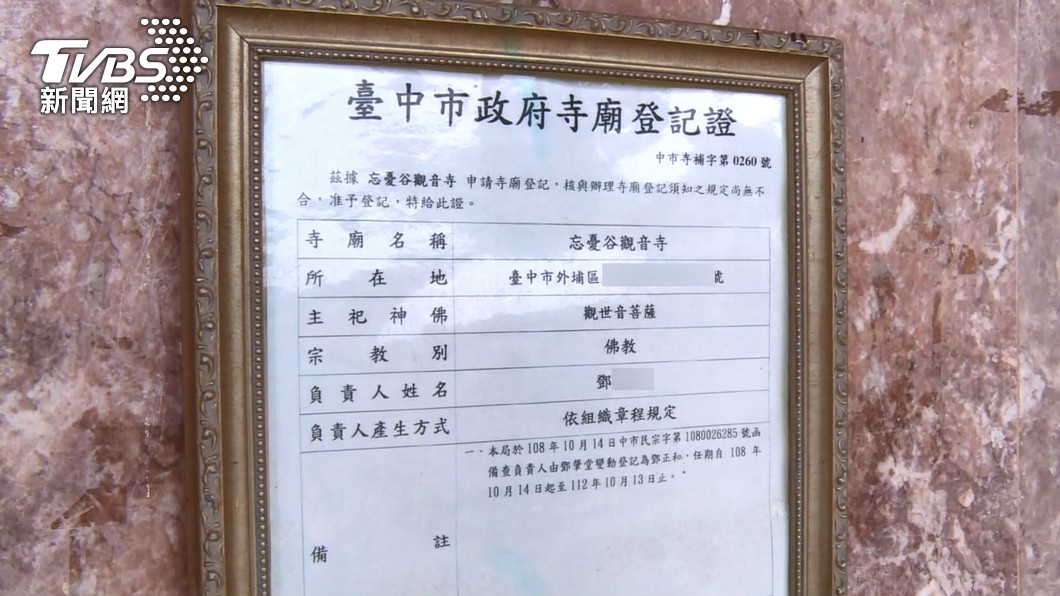 TVBS
新聞網
臺中市政府寺廟登記證
中市寺補字第0260號
茲據 忘憂谷觀音寺 申請寺廟登記，核與辦理寺廟登記須知之規定尚無不
合，准予登記，特給此證。
寺廟名稱 忘憂谷觀音寺
所在地 臺中市外埔區 號
主祀神佛 觀世音菩薩
宗教別 佛教
負責人姓名 鄧
負責人產生方式 依組織章程規定
一、本局於108年10月14日中市民宗字第1080026285號函
備查負責人由鄧肇堂變動登記為鄧正和，任期自 108 年
10月14日起至112年10月13日止。
備註